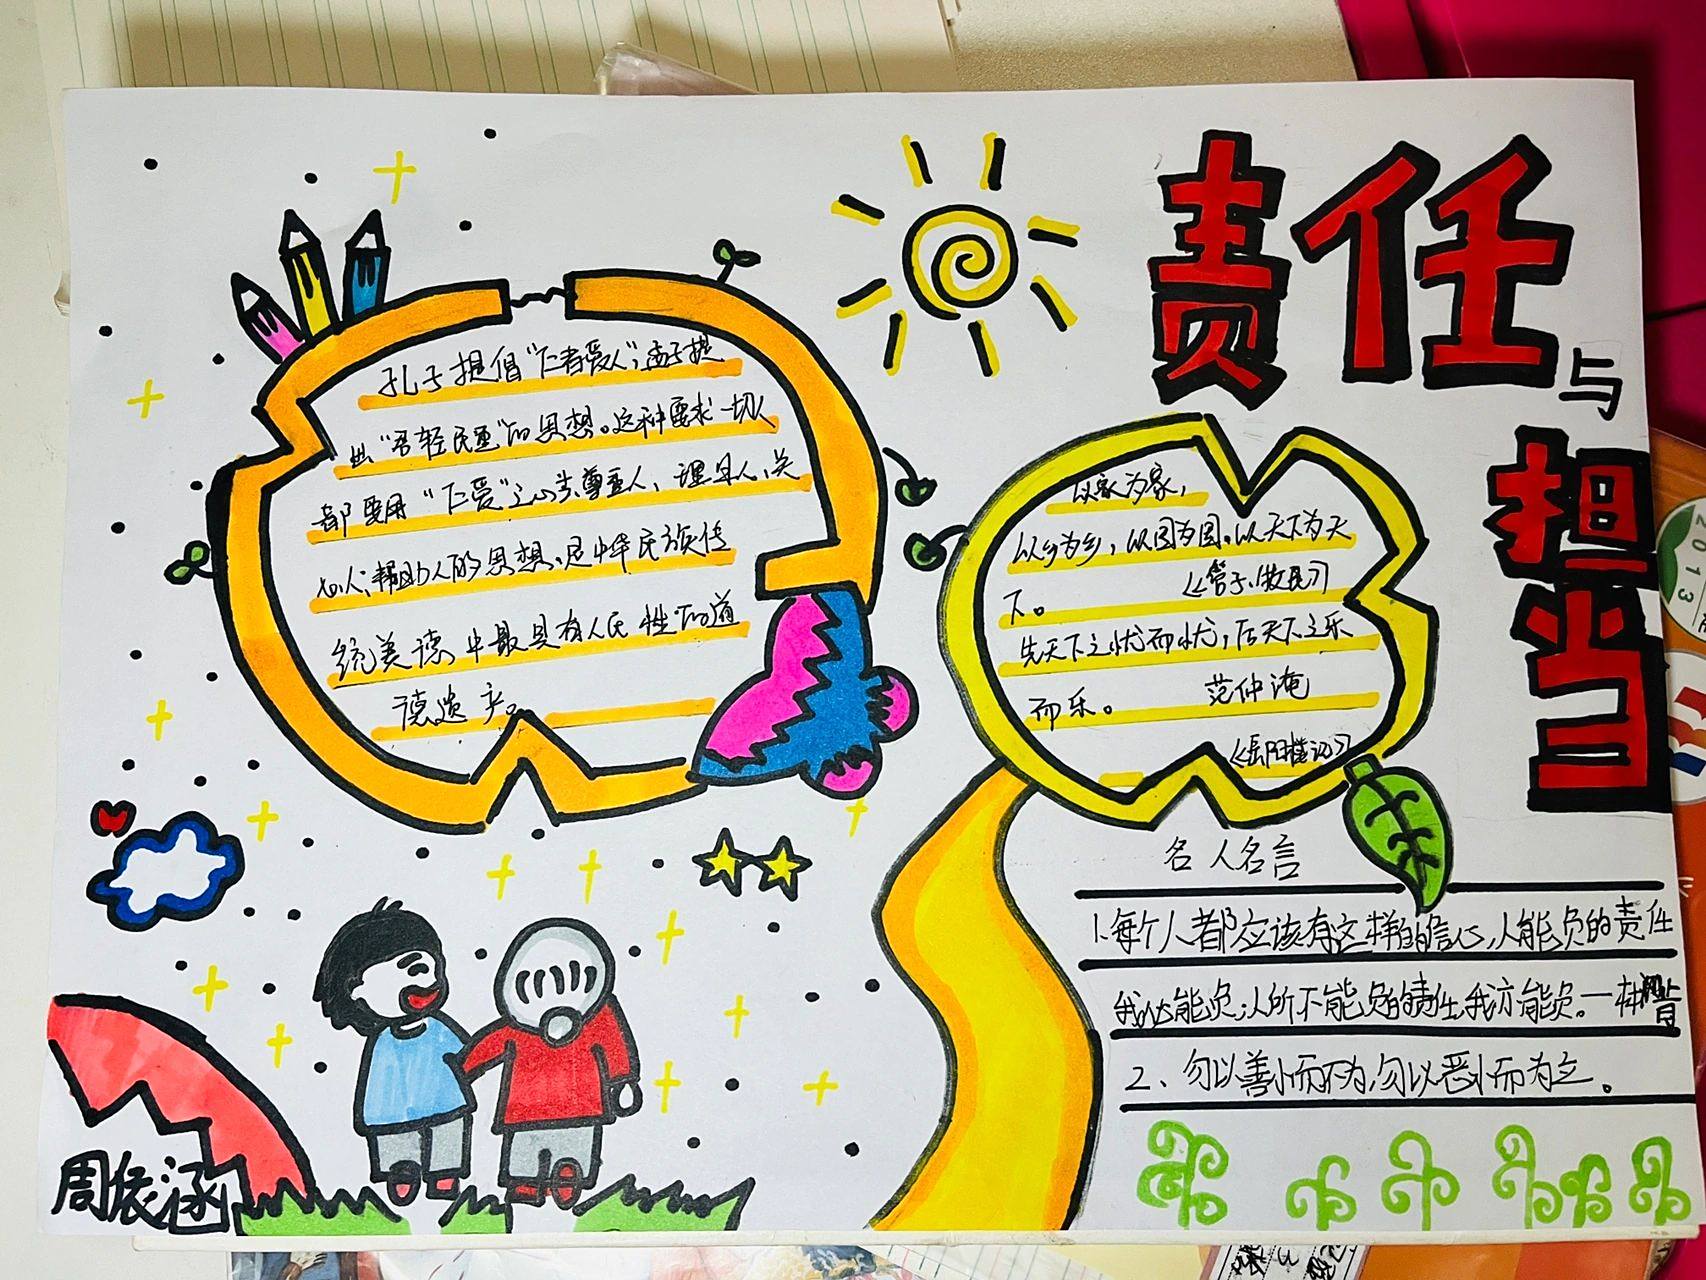 责任
与
担当
孔子提倡“仁者爱人”，孟子提
出“君轻民重”的思想。这种要求一切人
都要用“仁爱”之心去尊重人、理且人、关
心人、帮助人的思想、是中华民族传
统美德中最具有人民性的道
德遗产。
以家为家，
以乡为乡，以国为国。以天下为天
下。
《管子·牧民》
先天下之忧而忧，后天下之乐
而乐。 范仲淹
《岳阳楼记》
名人名言
1.每个人都应该有这样的信心，人能负的责任
我必能负；人所不能负的责任，我亦能负。一林
2、勿以善小而不为，勿以恶小而为之。
周依涵
2013